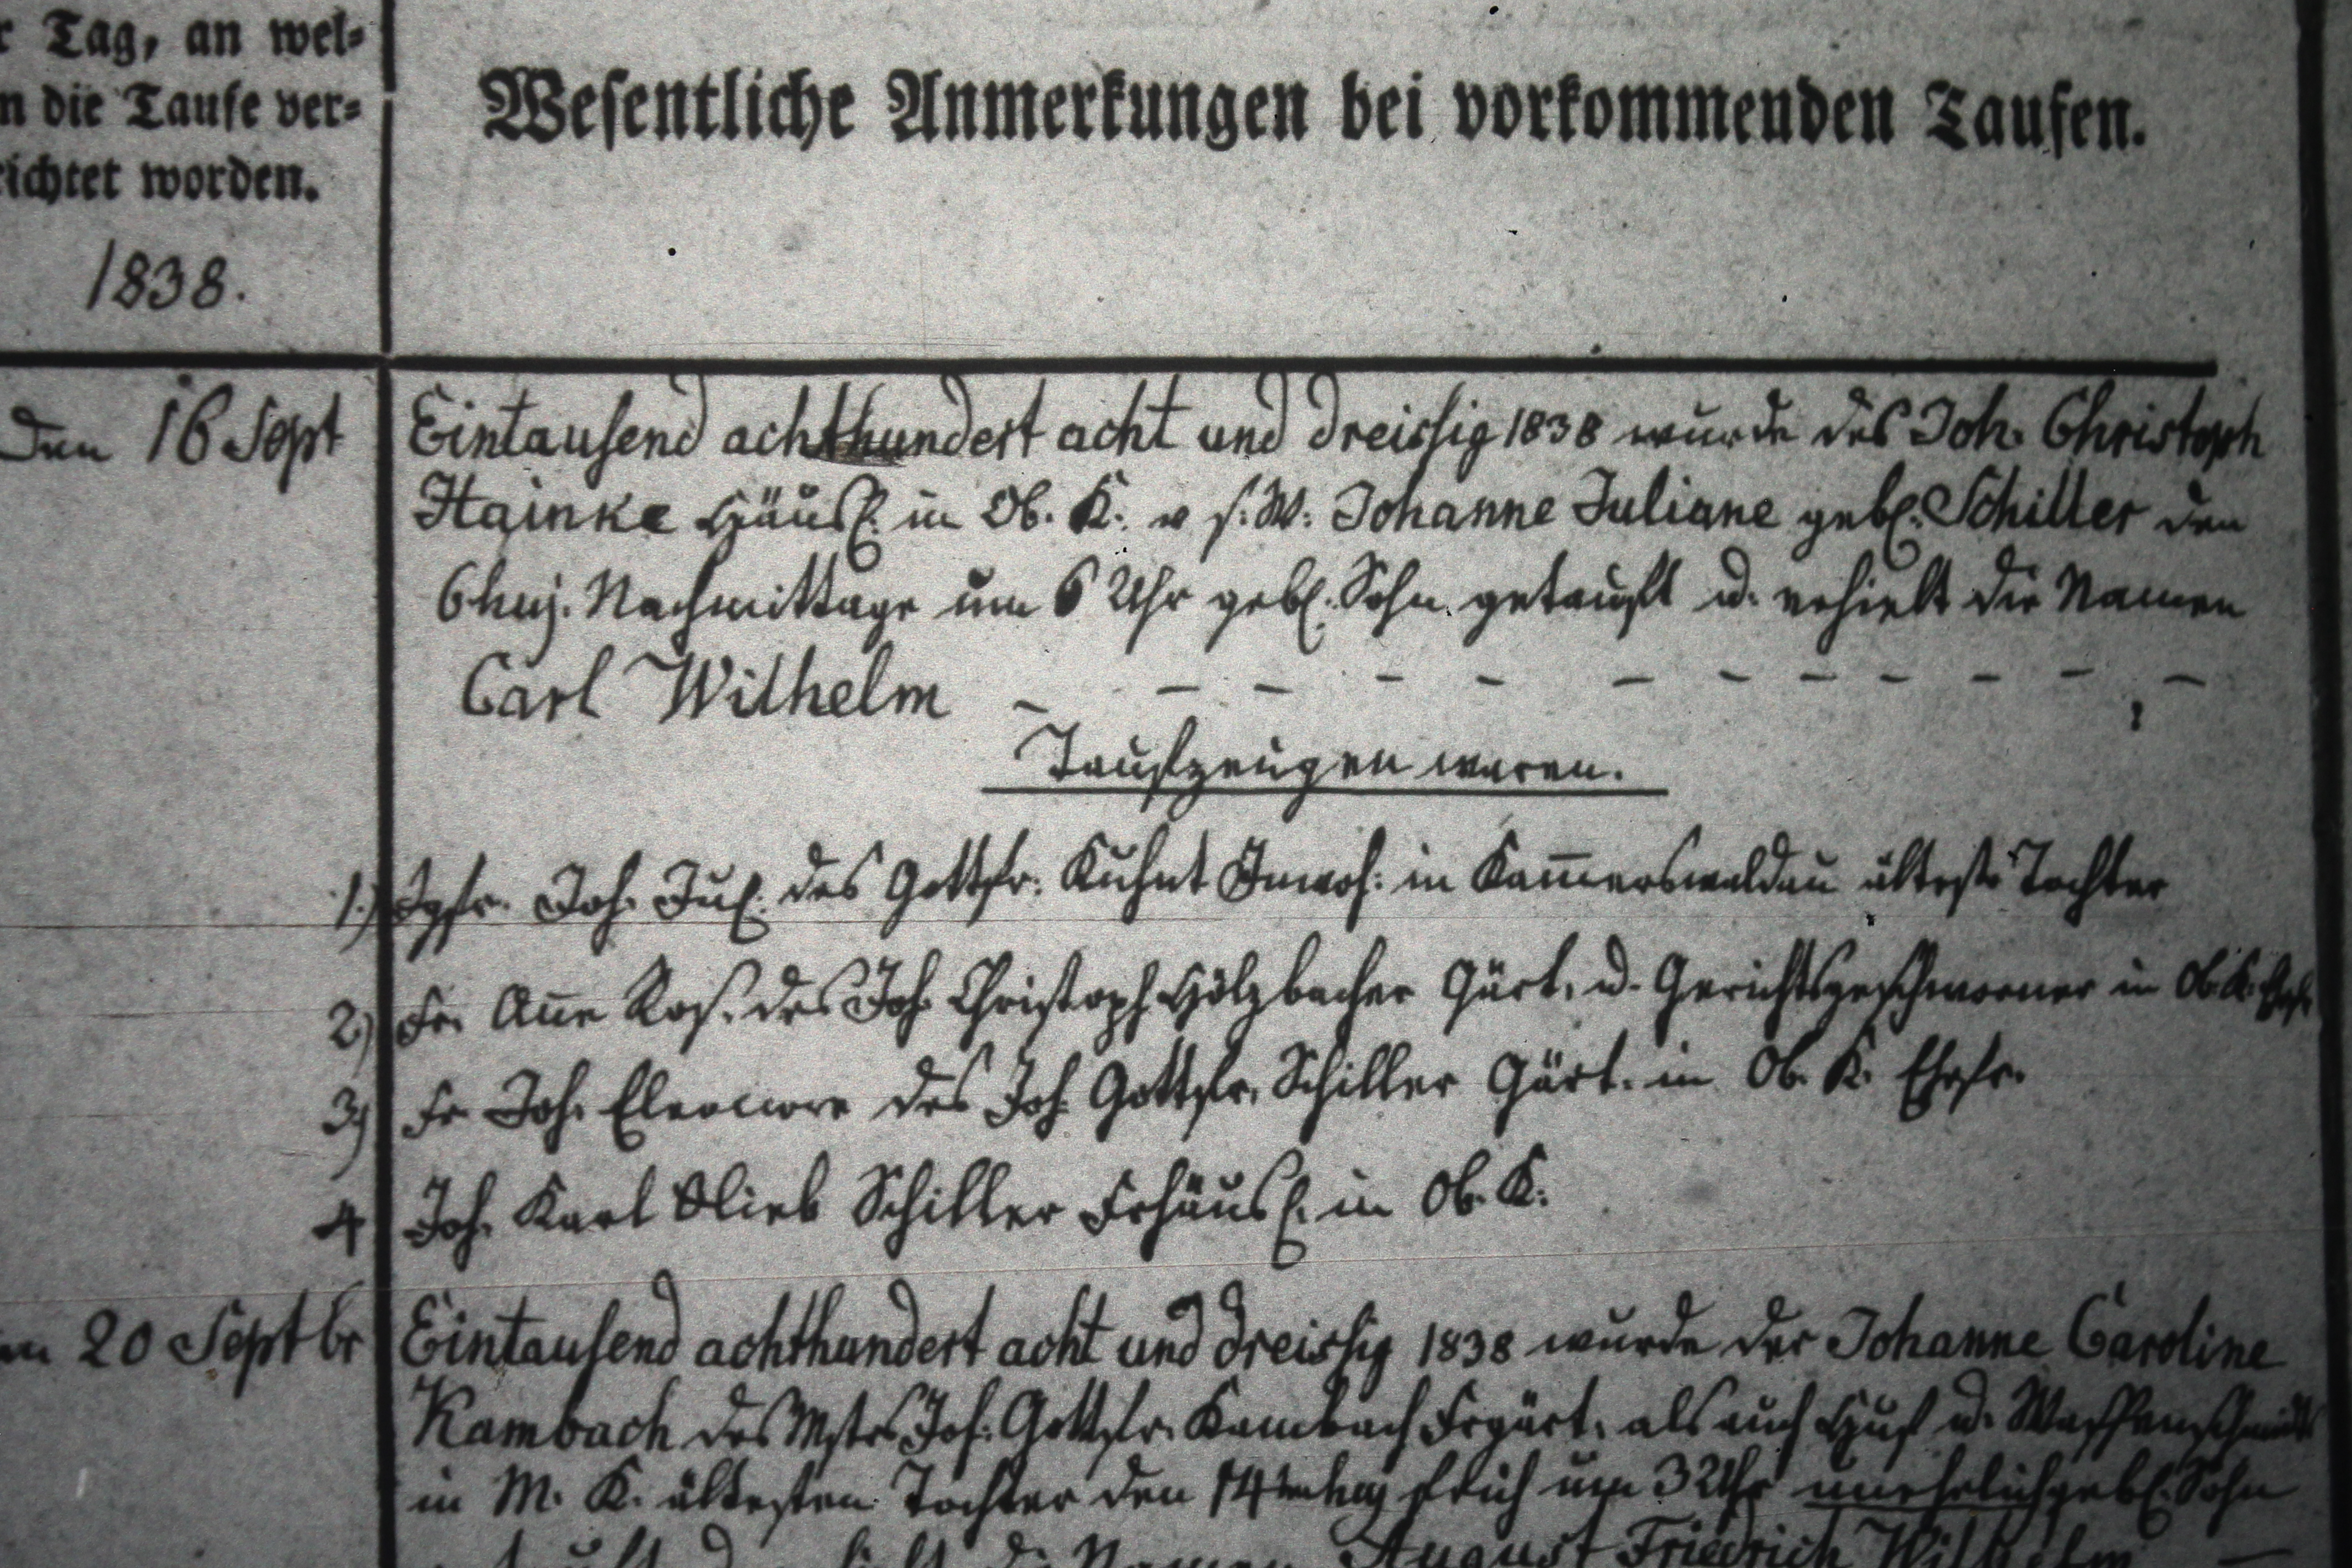 r Tag, an wel-
n die Taufe ver-
richtet worden.
1838.
Wesentliche Anmerkungen bei vorkommenden Taufen.
Den 16 Sept
Eintausend achthundert acht und dreissig 1838 wurde des Joh. Christoph
Hainke Häusl. in Ob. K. v s. W. Johanne Juliane gebl. Schiller den
6 huj. Nachmittage um 6 Uhr gebl. Sohn getauft u. erhielt die Namen
Carl Wilhelm – – – – – – – – – – – –
Taufzeugen waren.
1.) Jgfr. Joh. Jul. des Gottfr. Kuhnt Inwoh: in Kam̅erswaldau älteste Tochter
2) Fr. An̅e Ros. des Joh. Christoph Hölzbecher Gärt. u. Gerichtsgeschworner in Ob. K. Ehefr.
3) Fr. Joh. Eleonore des Joh. Gottfr. Schiller Gärt. in Ob. K. Ehefr.
4 Joh. Karl Glieb Schiller Frhäusl. in Ob. K.
en 20 Septbr
Eintausend achthundert acht und dreissig 1838 wurde der Johanne Caroline
Kambach des Mstrs Joh. Gottfr. Kambach Frgärt. als auch Huf u. Waffenschmidts
in M. K. ältesten Tochter den 14 huj früh um 3 Uhr unehelich gebl. Sohn
getauft u. erhielt die Namen August Friedrich Wilhelm –